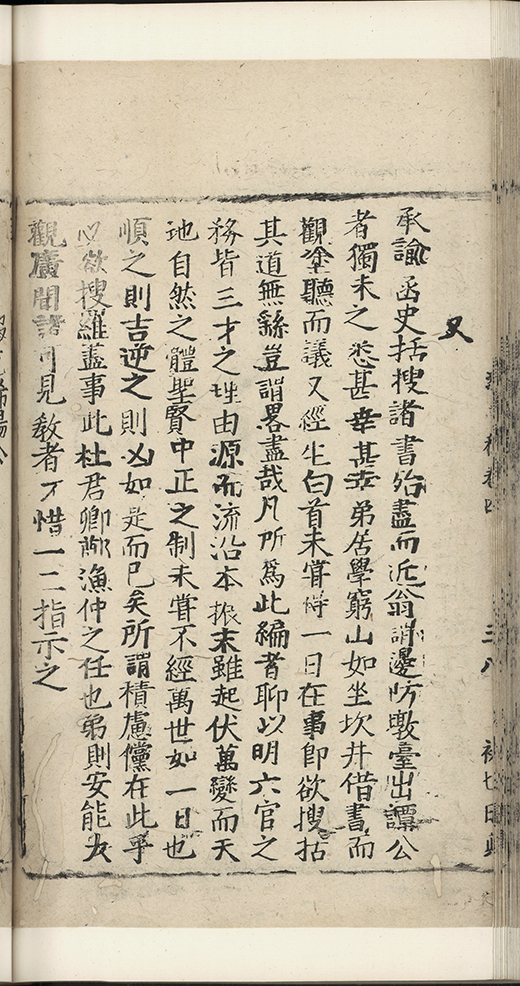 又
承諭函史括搜諸書殆盡而近翁謂邊防墩臺出譚公
者獨未之悉甚幸甚幸弟居學窮山如坐坎井借書而
觀塗聽而議又經生白首未嘗得一日在事即欲搜括
其道無繇豈謂畧盡哉凡所爲此編者聊以明六官之
務皆三才之理由源而流沿本振末雖起伏萬變而天
地自然之體聖賢中正之制未嘗不經萬世如一日也
順之則吉逆之則凶如是而已矣所謂積慮儻在此乎
必欲搜羅盡事此杜君卿鄭漁仲之任也弟則安能友
觀廣聞諸可見敎者不惜一二指示之